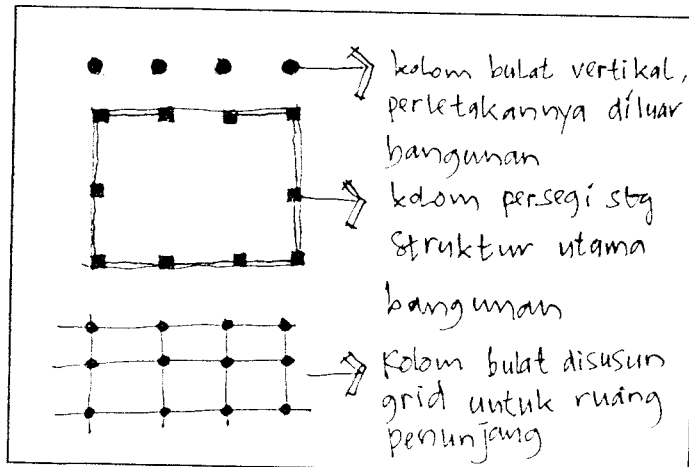 kolom bulat vertikal,
perletakannya diluar
bangunan
kolom persegi sbg
struktur utama
bangunan
Kolom bulat disusun
grid untuk ruang
penunjang